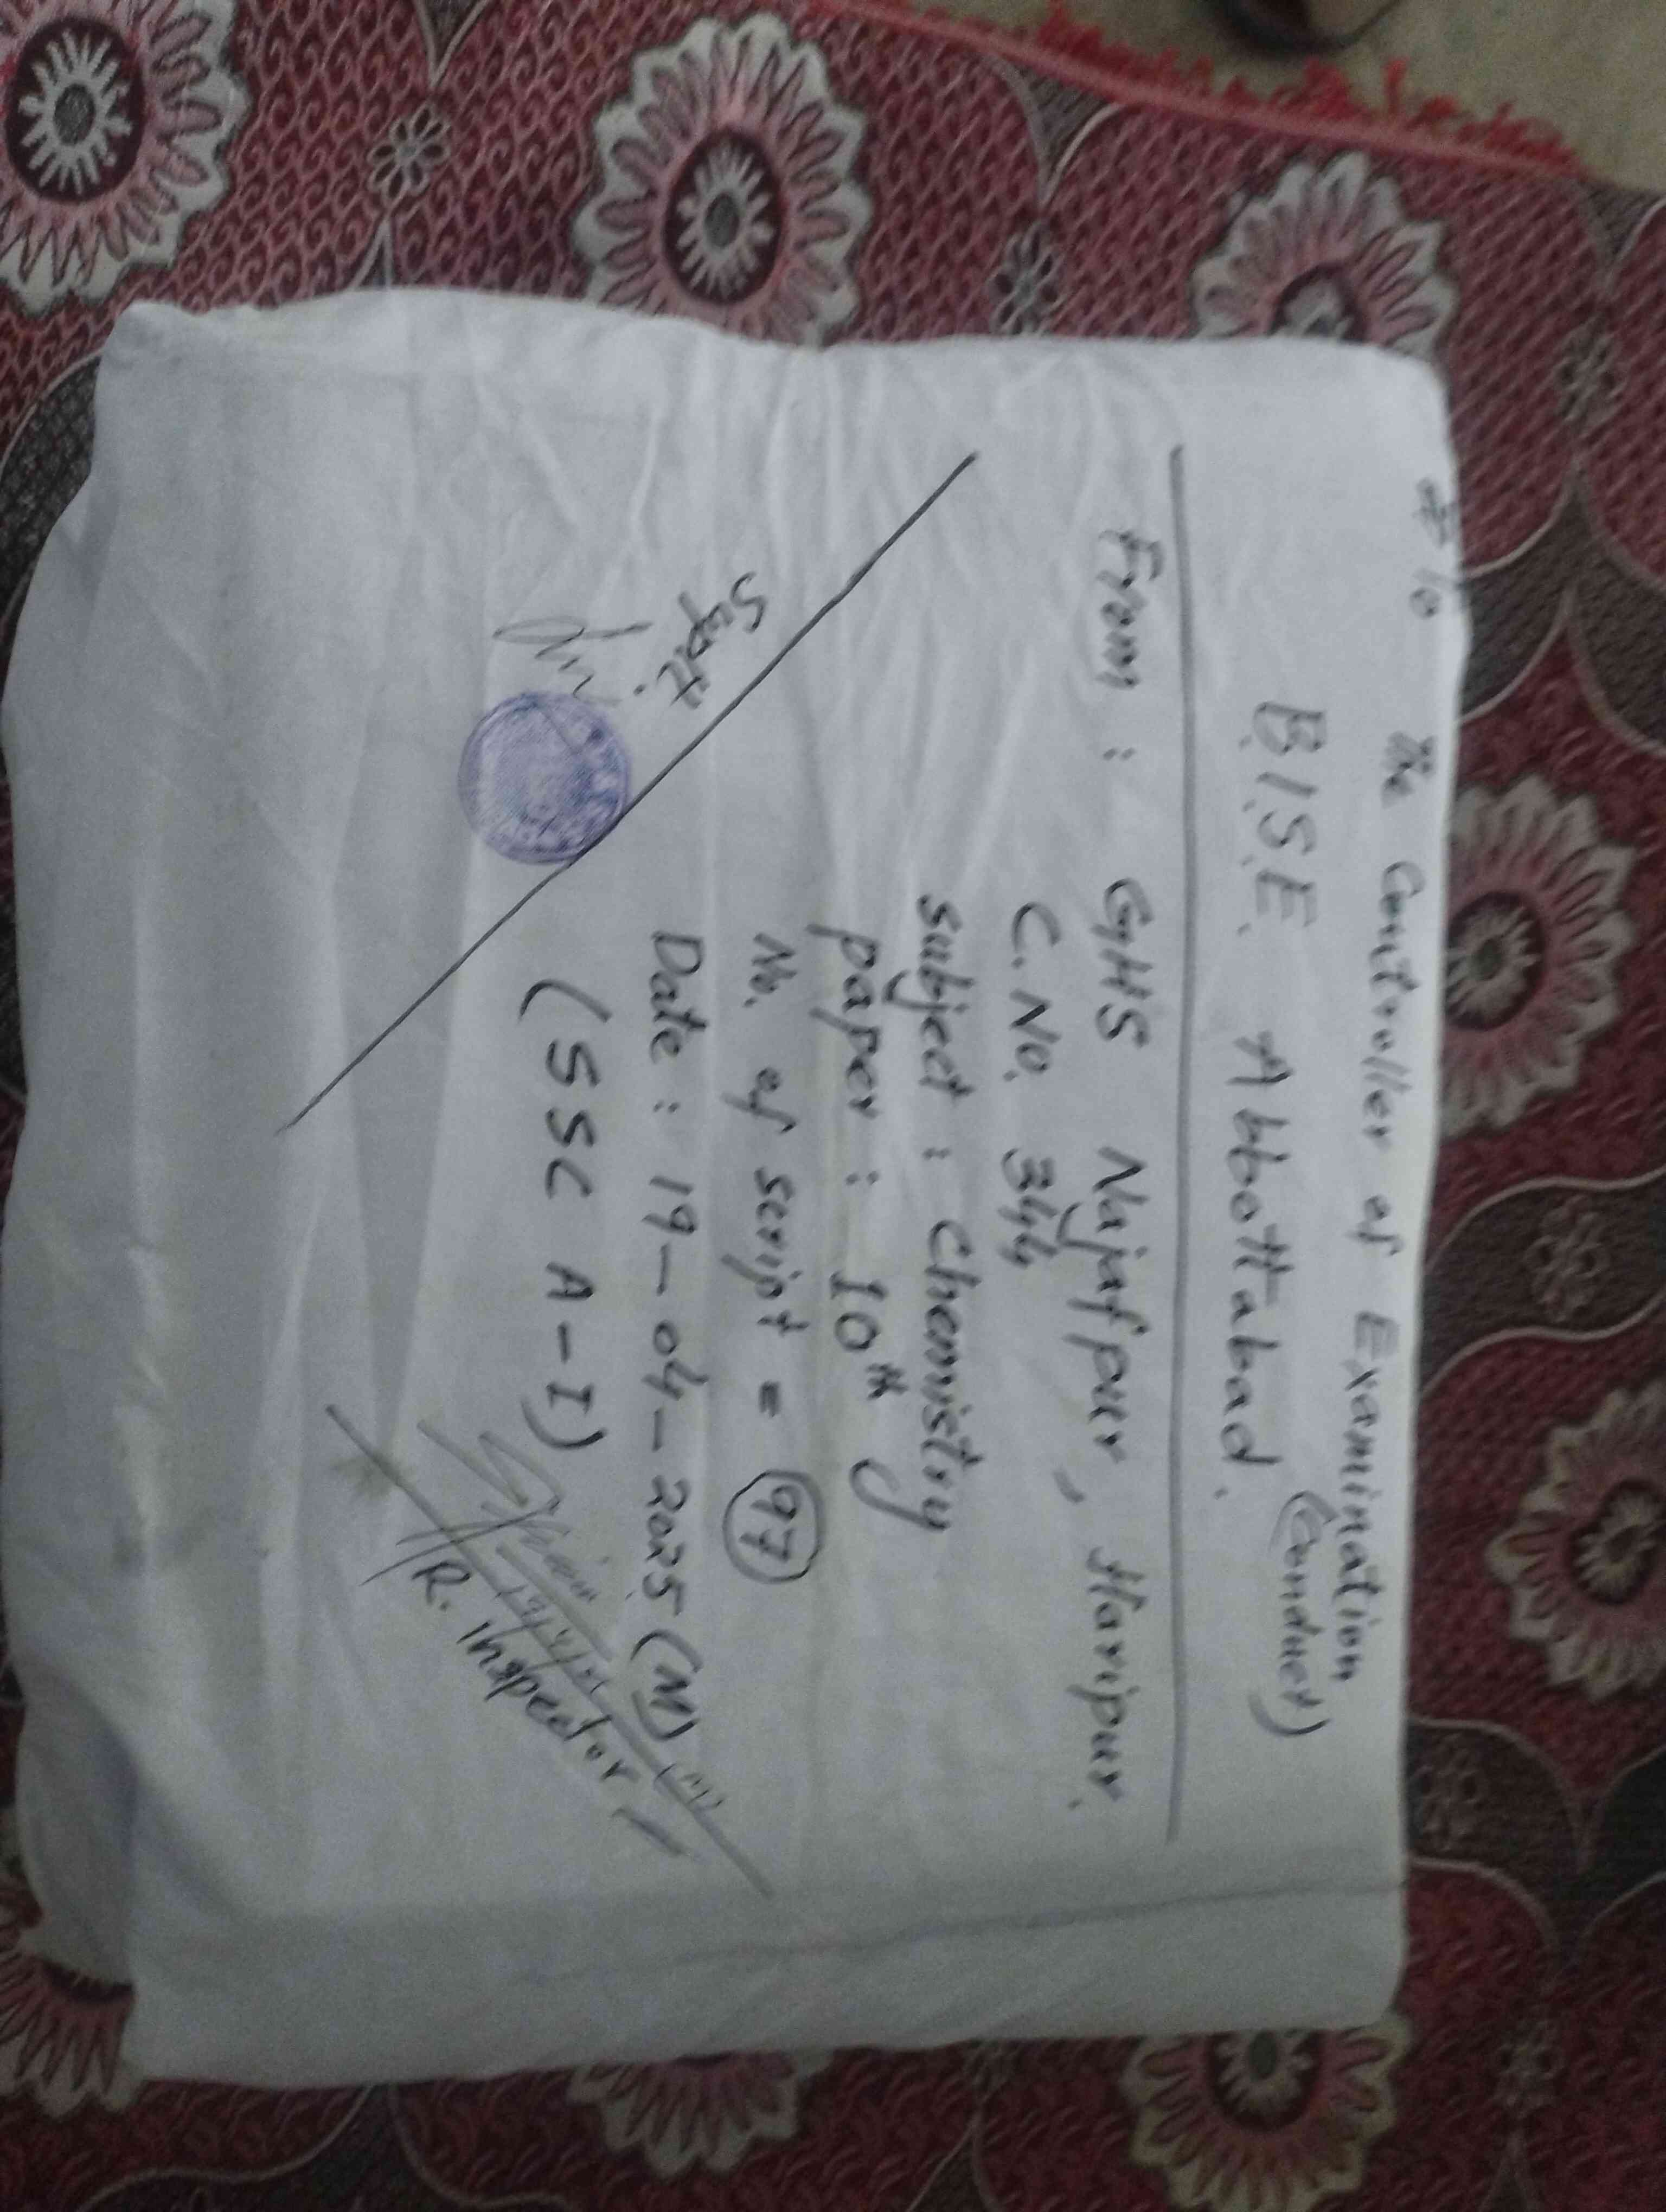 To
The Controller of Examination
(Conduct)
B.I.S.E. Abbottabad.
From : GHS Najafpur, Haripur.
C.No. 344
Subject : Chemistry
paper : 10th
No. of script = 97
Date : 19-04-2025 (M)
(SSC A-I)
Supdt.
R. Inspector